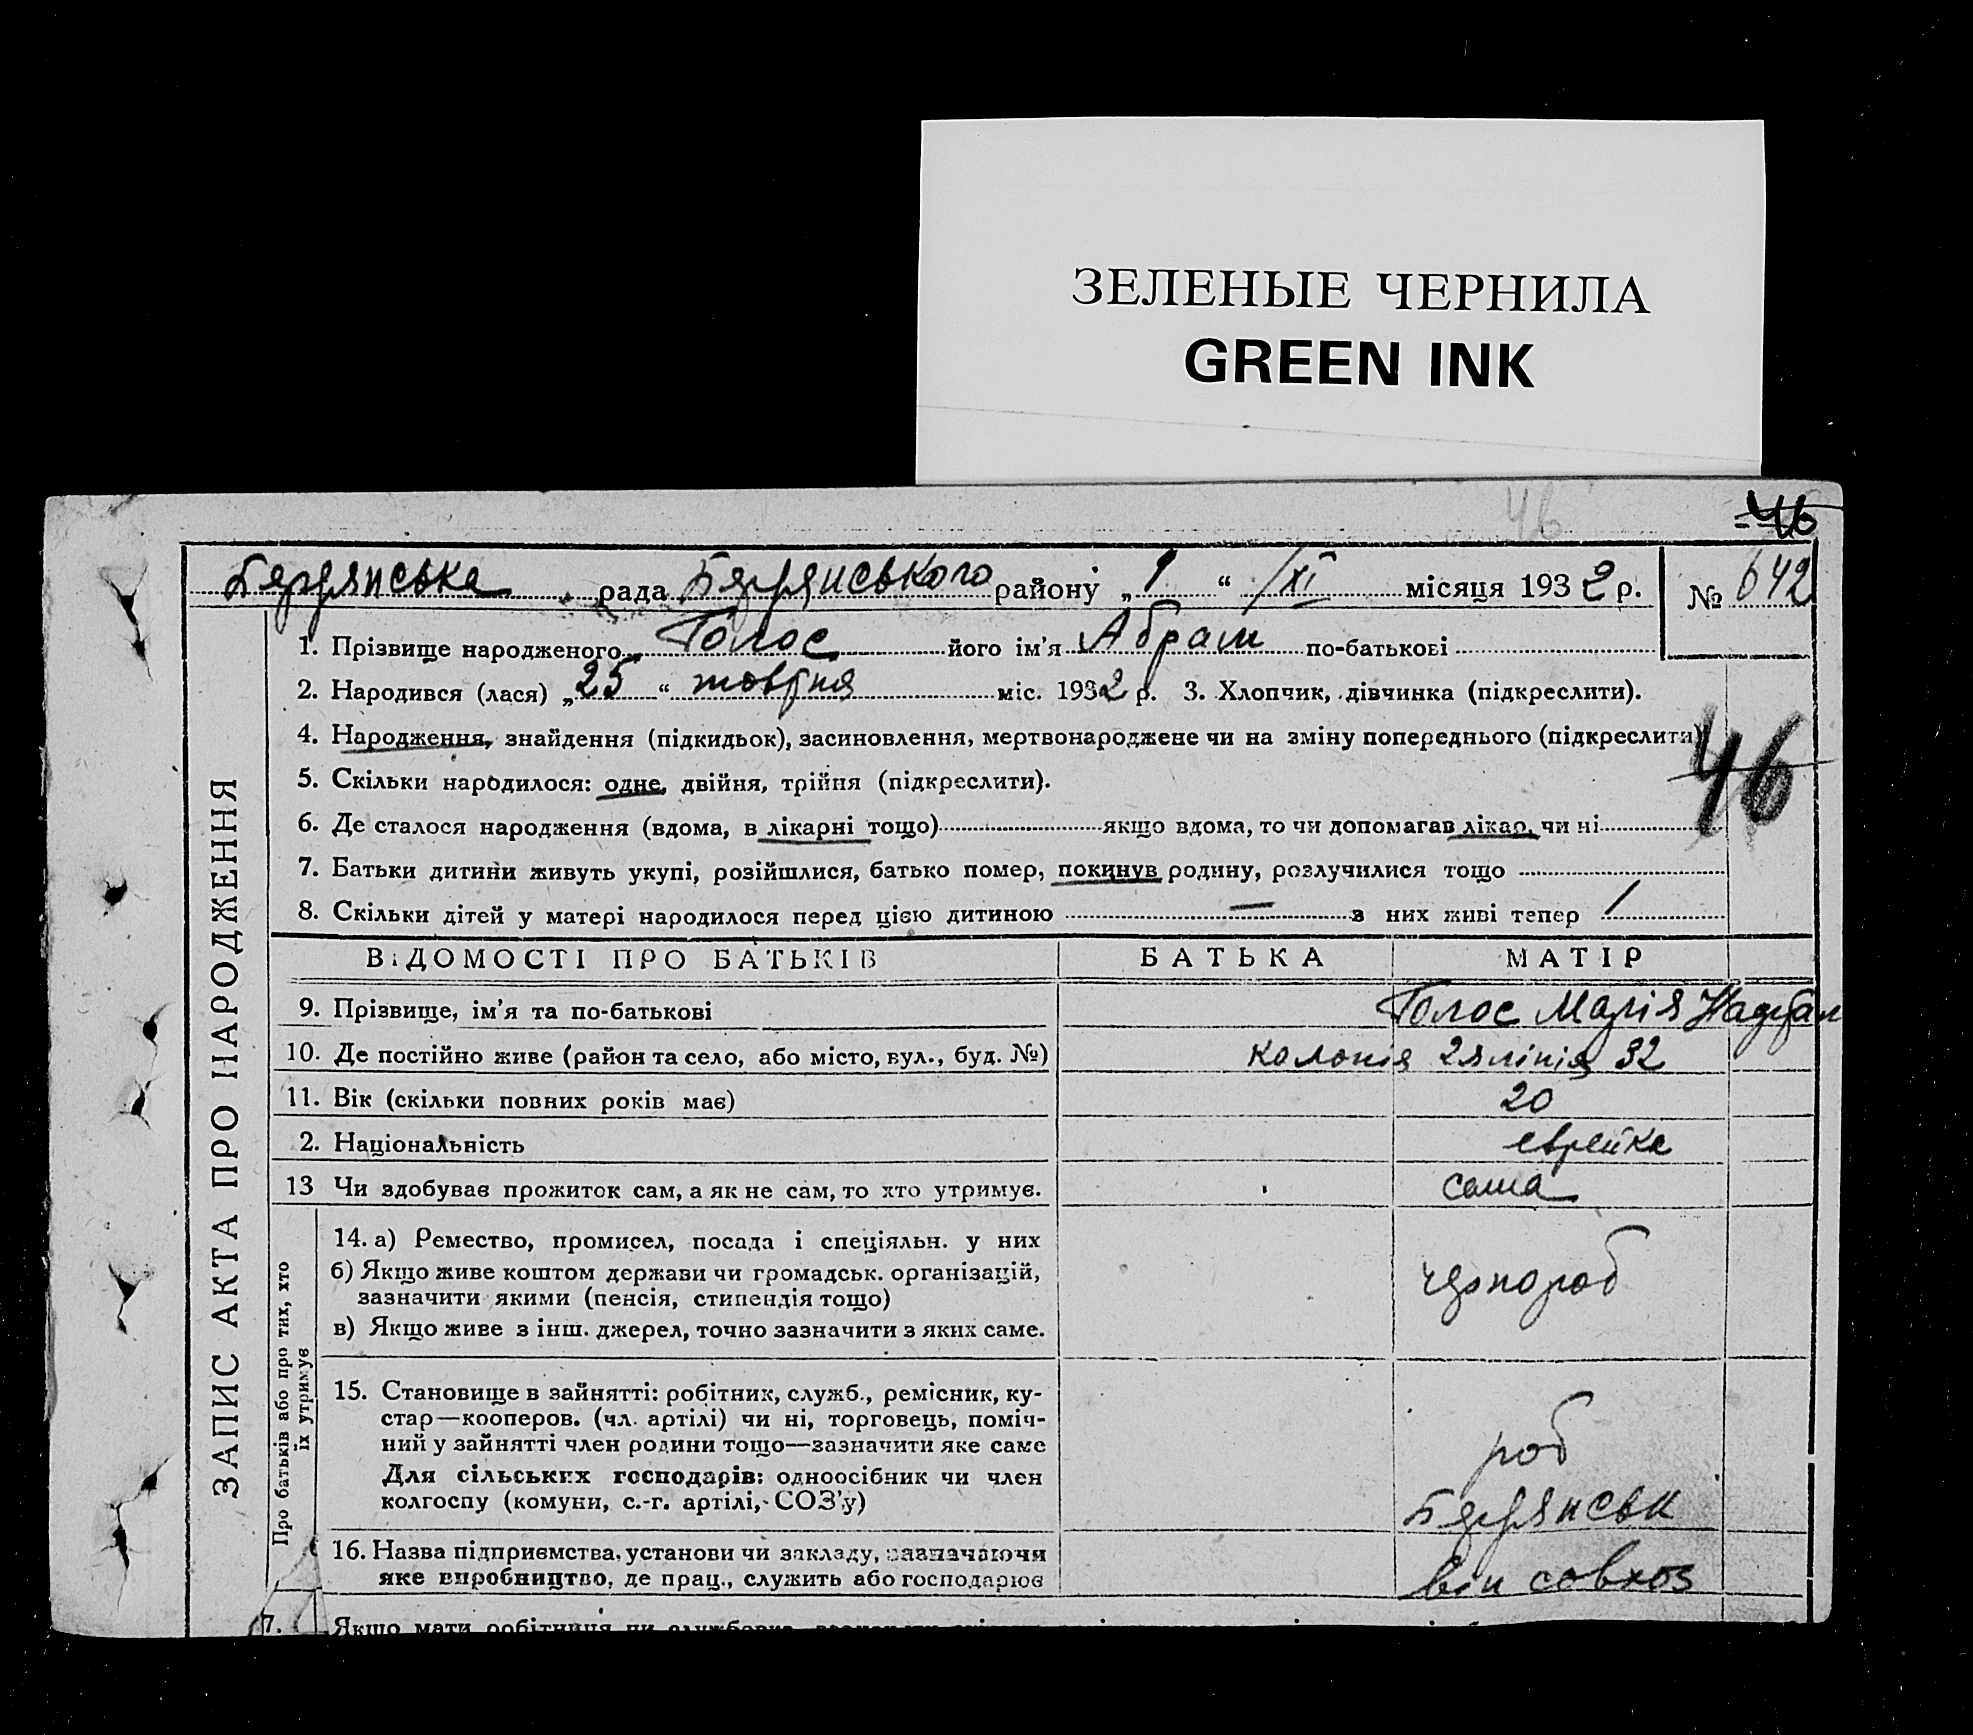 ЗЕЛЕНЫЕ ЧЕРНИЛА
GREEN INK
46
46
Бердянська рада Бердянського району „1“ /XI місяця 1932 р. № 642
1. Прізвище народженого Голос його ім'я Абрам по-батькові
2. Народився (лася) „25“ жовтня міс. 1932 р. 3. Хлопчик, дівчинка (підкреслити).
4. Народження, знайдення (підкидьок), засиновлення, мертвонароджене чи на зміну попереднього (підкреслити)
46
5. Скільки народилося: одне, двійня, трійня (підкреслити).
6. Де сталося народження (вдома, в лікарні тощо) якщо вдома, то чи допомагав лікар, чи ні
7. Батьки дитини живуть укупі, розійшлися, батько помер, покинув родину, розлучилися тощо
8. Скільки дітей у матері народилося перед цією дитиною — з них живі тепер /
ЗАПИС АКТА ПРО НАРОДЖЕННЯ
ВІДОМОСТІ ПРО БАТЬКІВ БАТЬКА МАТІР
9. Прізвище, ім'я та по-батькові Голос Марія
10. Де постійно живе (район та село, або місто, вул., буд. №) колонія 2я лінія 32
11. Вік (скільки повних років має) 20
2. Національність еврейка
13 Чи здобував прожиток сам, а як не сам, то хто утримує. сама
Про батьків або про тих, хто
їх утримує
14. а) Ремество, промисел, посада і спеціяльн. у них
б) Якщо живе коштом держави чи громадськ. організацій,
зазначити якими (пенсія, стипендія тощо) чорнороб
в) Якщо живе з інш. джерел, точно зазначити з яких саме.
15. Становище в зайнятті: робітник, служб., ремісник, ку-
стар—кооперов. (чл. артілі) чи ні, торговець, поміч-
ний у зайнятті член родини тощо—зазначити яке саме роб
Для сільських господарів: одноосібник чи член
колгоспу (комуни, с.-г. артілі, СОЗ'у) Бердянськ
16. Назва підприємства, установи чи закладу, зазначаючи
яке виробництво, де прац., служить або господарює він совхоз
7. Якщо мати робітниця чи службовка,